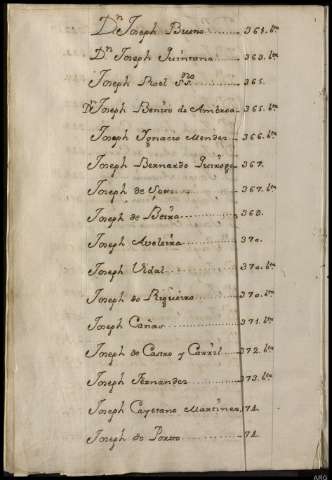 Dn Joseph Bueno 361. bta
Dn Joseph Quintana 363. bta
Joseph Roel 365.
Dn Joseph Benito de Ambroa 365. bta
Joseph Ignacio Mendez 366. bta
Joseph Bernardo Quiroga 367.
Joseph de 367. bta
Joseph de Beira 368.
Joseph Aveleira 370.
Joseph Vidal 370. bta
Joseph do Rigueiro 370. bta
Joseph Cañas 371. bta
Joseph de Castro y Carril 372. bta
Joseph Fernandez 373. bta
Joseph Cayetano Martinez 74.
Joseph do Porto 74